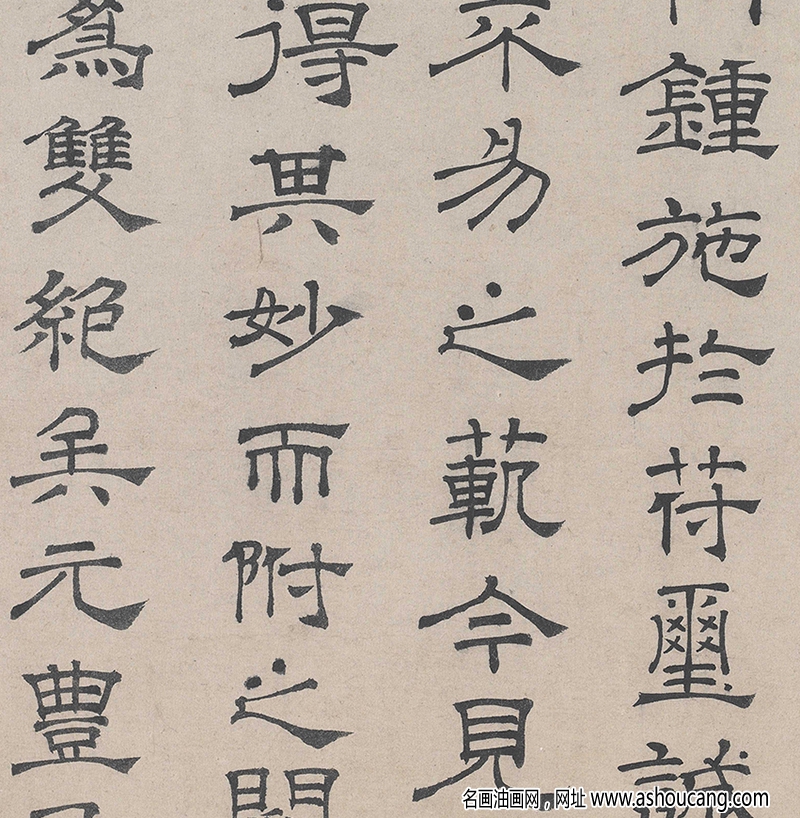 鍾施扵苻璽
易之範今見
得其妙而附之
為雙絕矣元豐
名画油画网，网址 www.ashoucang.com